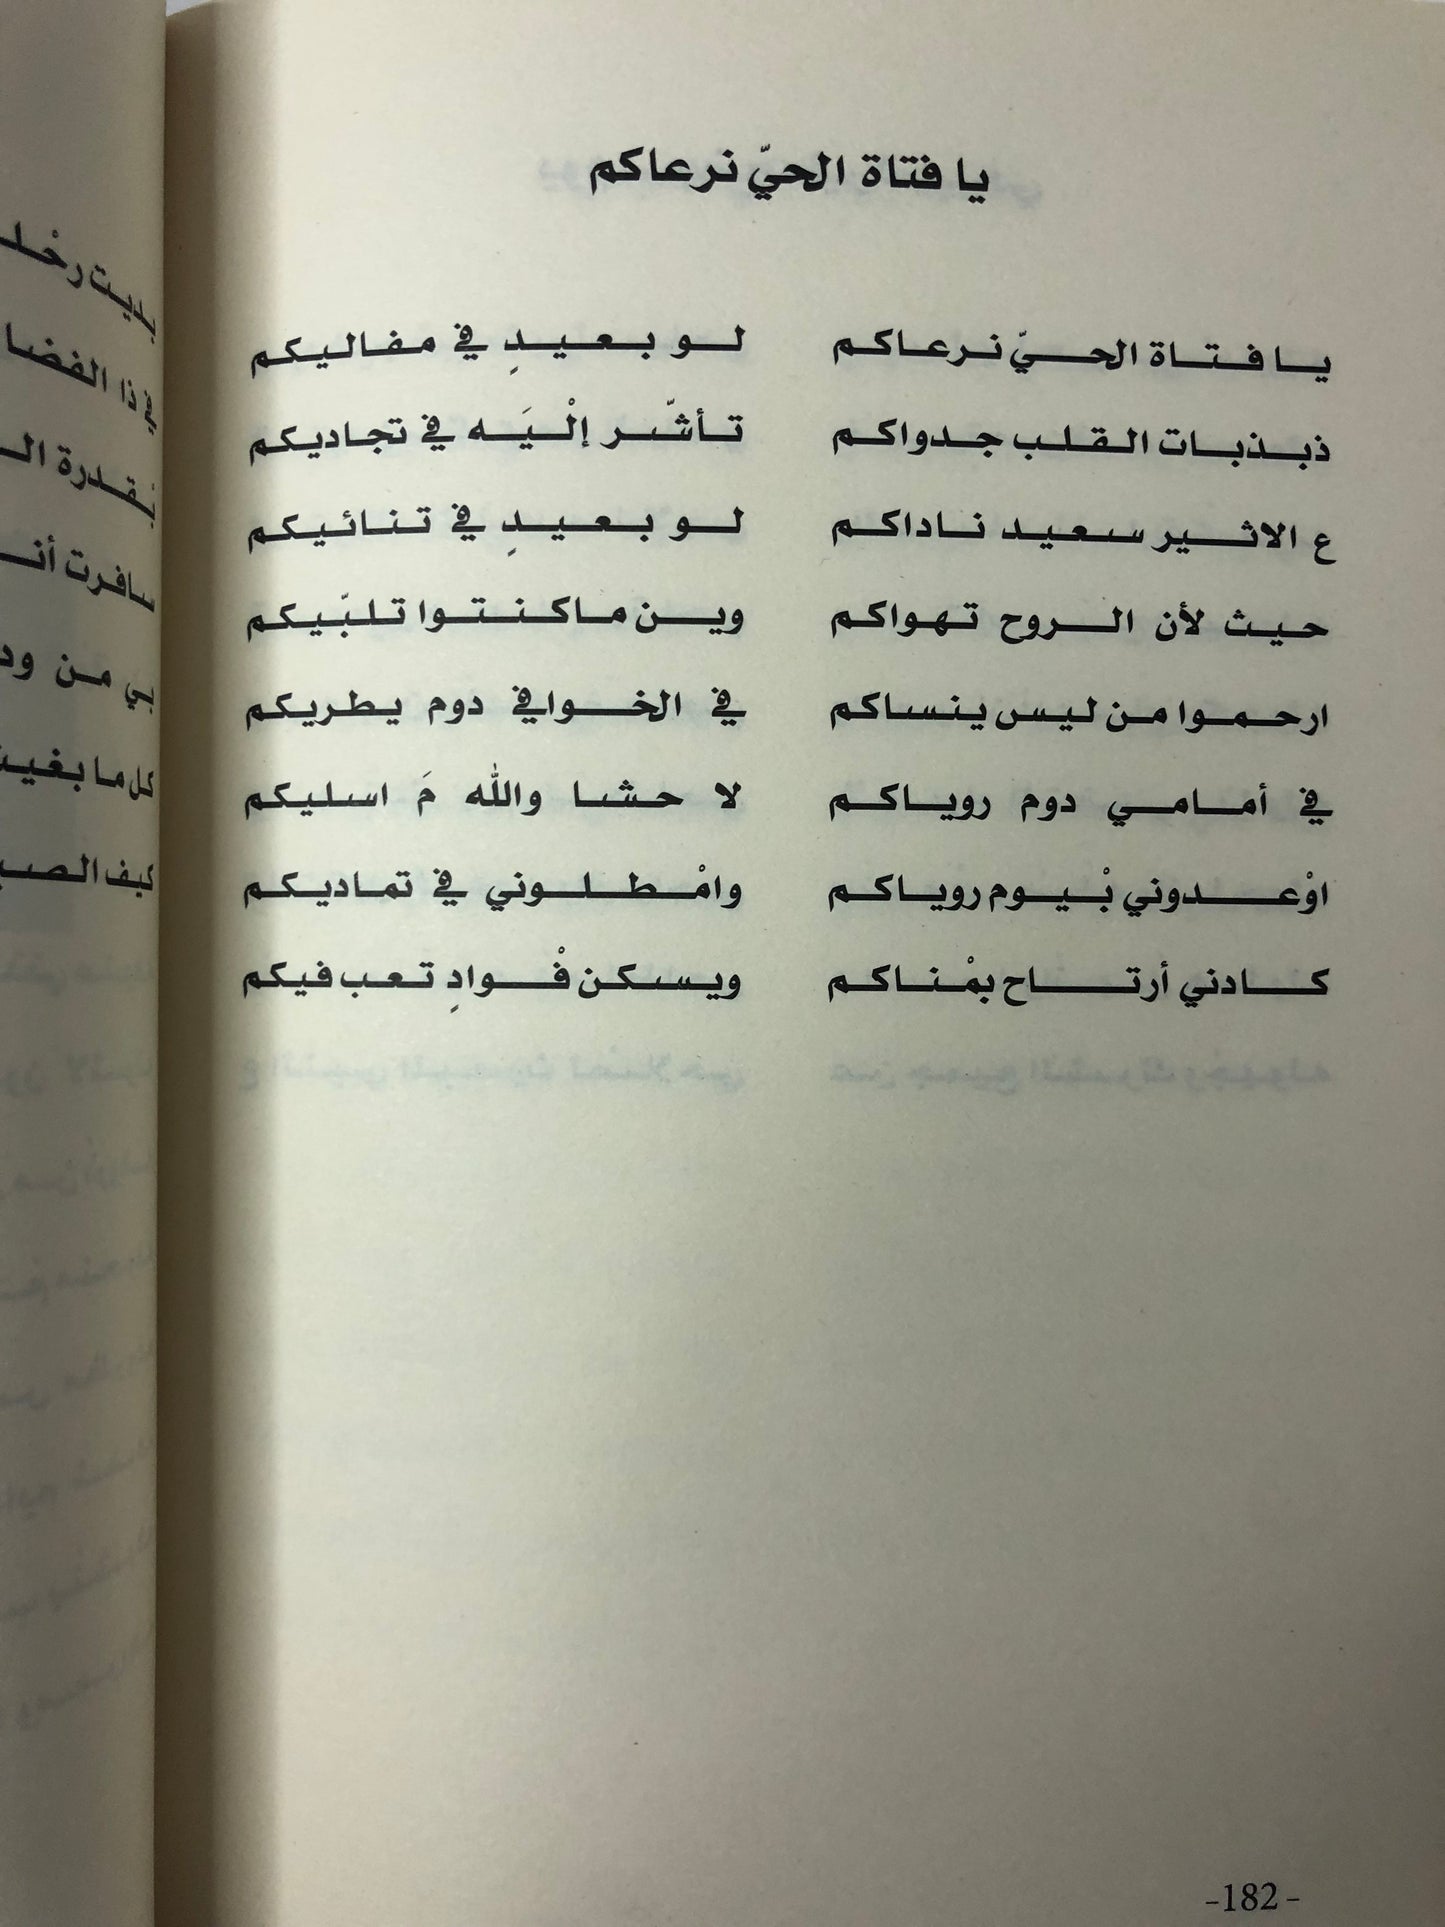 يا فتاة الحيّ نرعاكم
يا فتاة الحيّ نرعاكم لو بعيدٍ في مفاليكم
ذبذبات القلب جدواكم تأشّر إلْيَه في تجاديكم
ع الاثير سعيد ناداكم لو بعيدٍ في تنائيكم
حيث لأن الروح تهواكم وين ماكنتوا تلبّيكم
ارحموا من ليس ينساكم في الخوافي دوم يطريكم
في أمامي دوم روياكم لا حشا والله مَ اسليكم
اوْعدوني بْيوم روياكم وامْطلوني في تماديكم
كادني أرتاح بمْناكم ويسكن فْوادٍ تعب فيكم
-182-